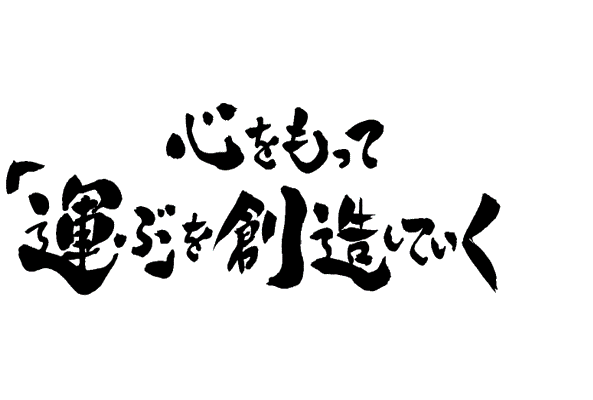 心をもって
「運ぶ」を創造していく